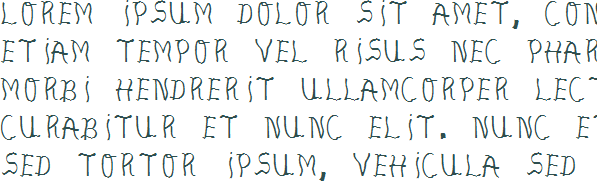 LOREM IPSUM DOLOR SIT AMET, CON
ETIAM TEMPOR VEL RISUS NEC PHAR
MORBI HENDRERIT ULLAMCORPER LECT
CURABITUR ET NUNC ELIT. NUNC ET
SED TORTOR IPSUM, VEHICULA SED